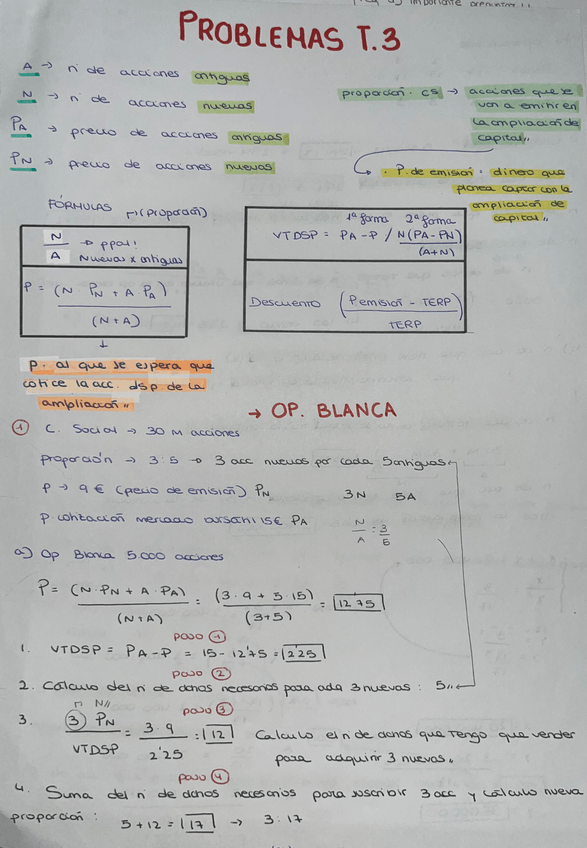 importante
PROBLEMAS T.3
A → nº de acciones antiguas
N → nº de acciones nuevas
PA → precio de acciones antiguas
PN → precio de acciones nuevas
proporción · CS → acciones que se
van a emitir en
la ampliación de
capital,,
· P. de emisión : dinero que
planea captar con la
ampliación de
capital,,
FÓRMULAS (proporción)
N/A → ppal!
Nuevas x antiguas
P = (N · PN + A · PA) / (N + A)
1ª forma 2ª forma
VTDSP = PA - P / N(PA - PN) / (A+N)
Descuento (P emisión - TERP) / TERP
P. al que se espera que
cotice la acc. dsp. de la
ampliación,,
→ OP. BLANCA
① C. Social → 30 M acciones
proporción → 3:5 → 3 acc nuevas por cada 5 antiguas
P → 9 € (precio de emisión) PN 3N 5A
P. cotización mercado 15€ PA N/A = 3/5
a) Op Blanca 5.000 acciones
P = (N · PN + A · PA) / (N+A) = (3 · 9 + 5 · 15) / (3+5) = 12'75
paso ①
1. VTDSP = PA - P = 15 - 12'75 = 2'25
paso ②
2. Cálculo del nº de dchos necesarios para cada 3 nuevas : 5,,
N,, paso ③
3. ③ PN / VTDSP = 3 · 9 / 2'25 = 12 Calculo el nº de dchos que tengo que vender
para adquirir 3 nuevas.
paso ④
4. Suma del nº de dchos necesarios para suscribir 3 acc y cálculo nueva
proporción : 5 + 12 = 17 → 3:17